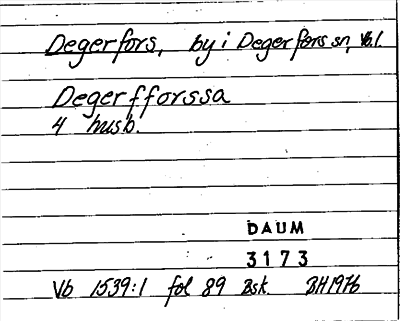 Degerfors, by i Degerfors sn, Vb.l.
Degerfforssa
4 husb.
DAUM
3173
Vb 1539:1 fol 89 Bsk. BH1976